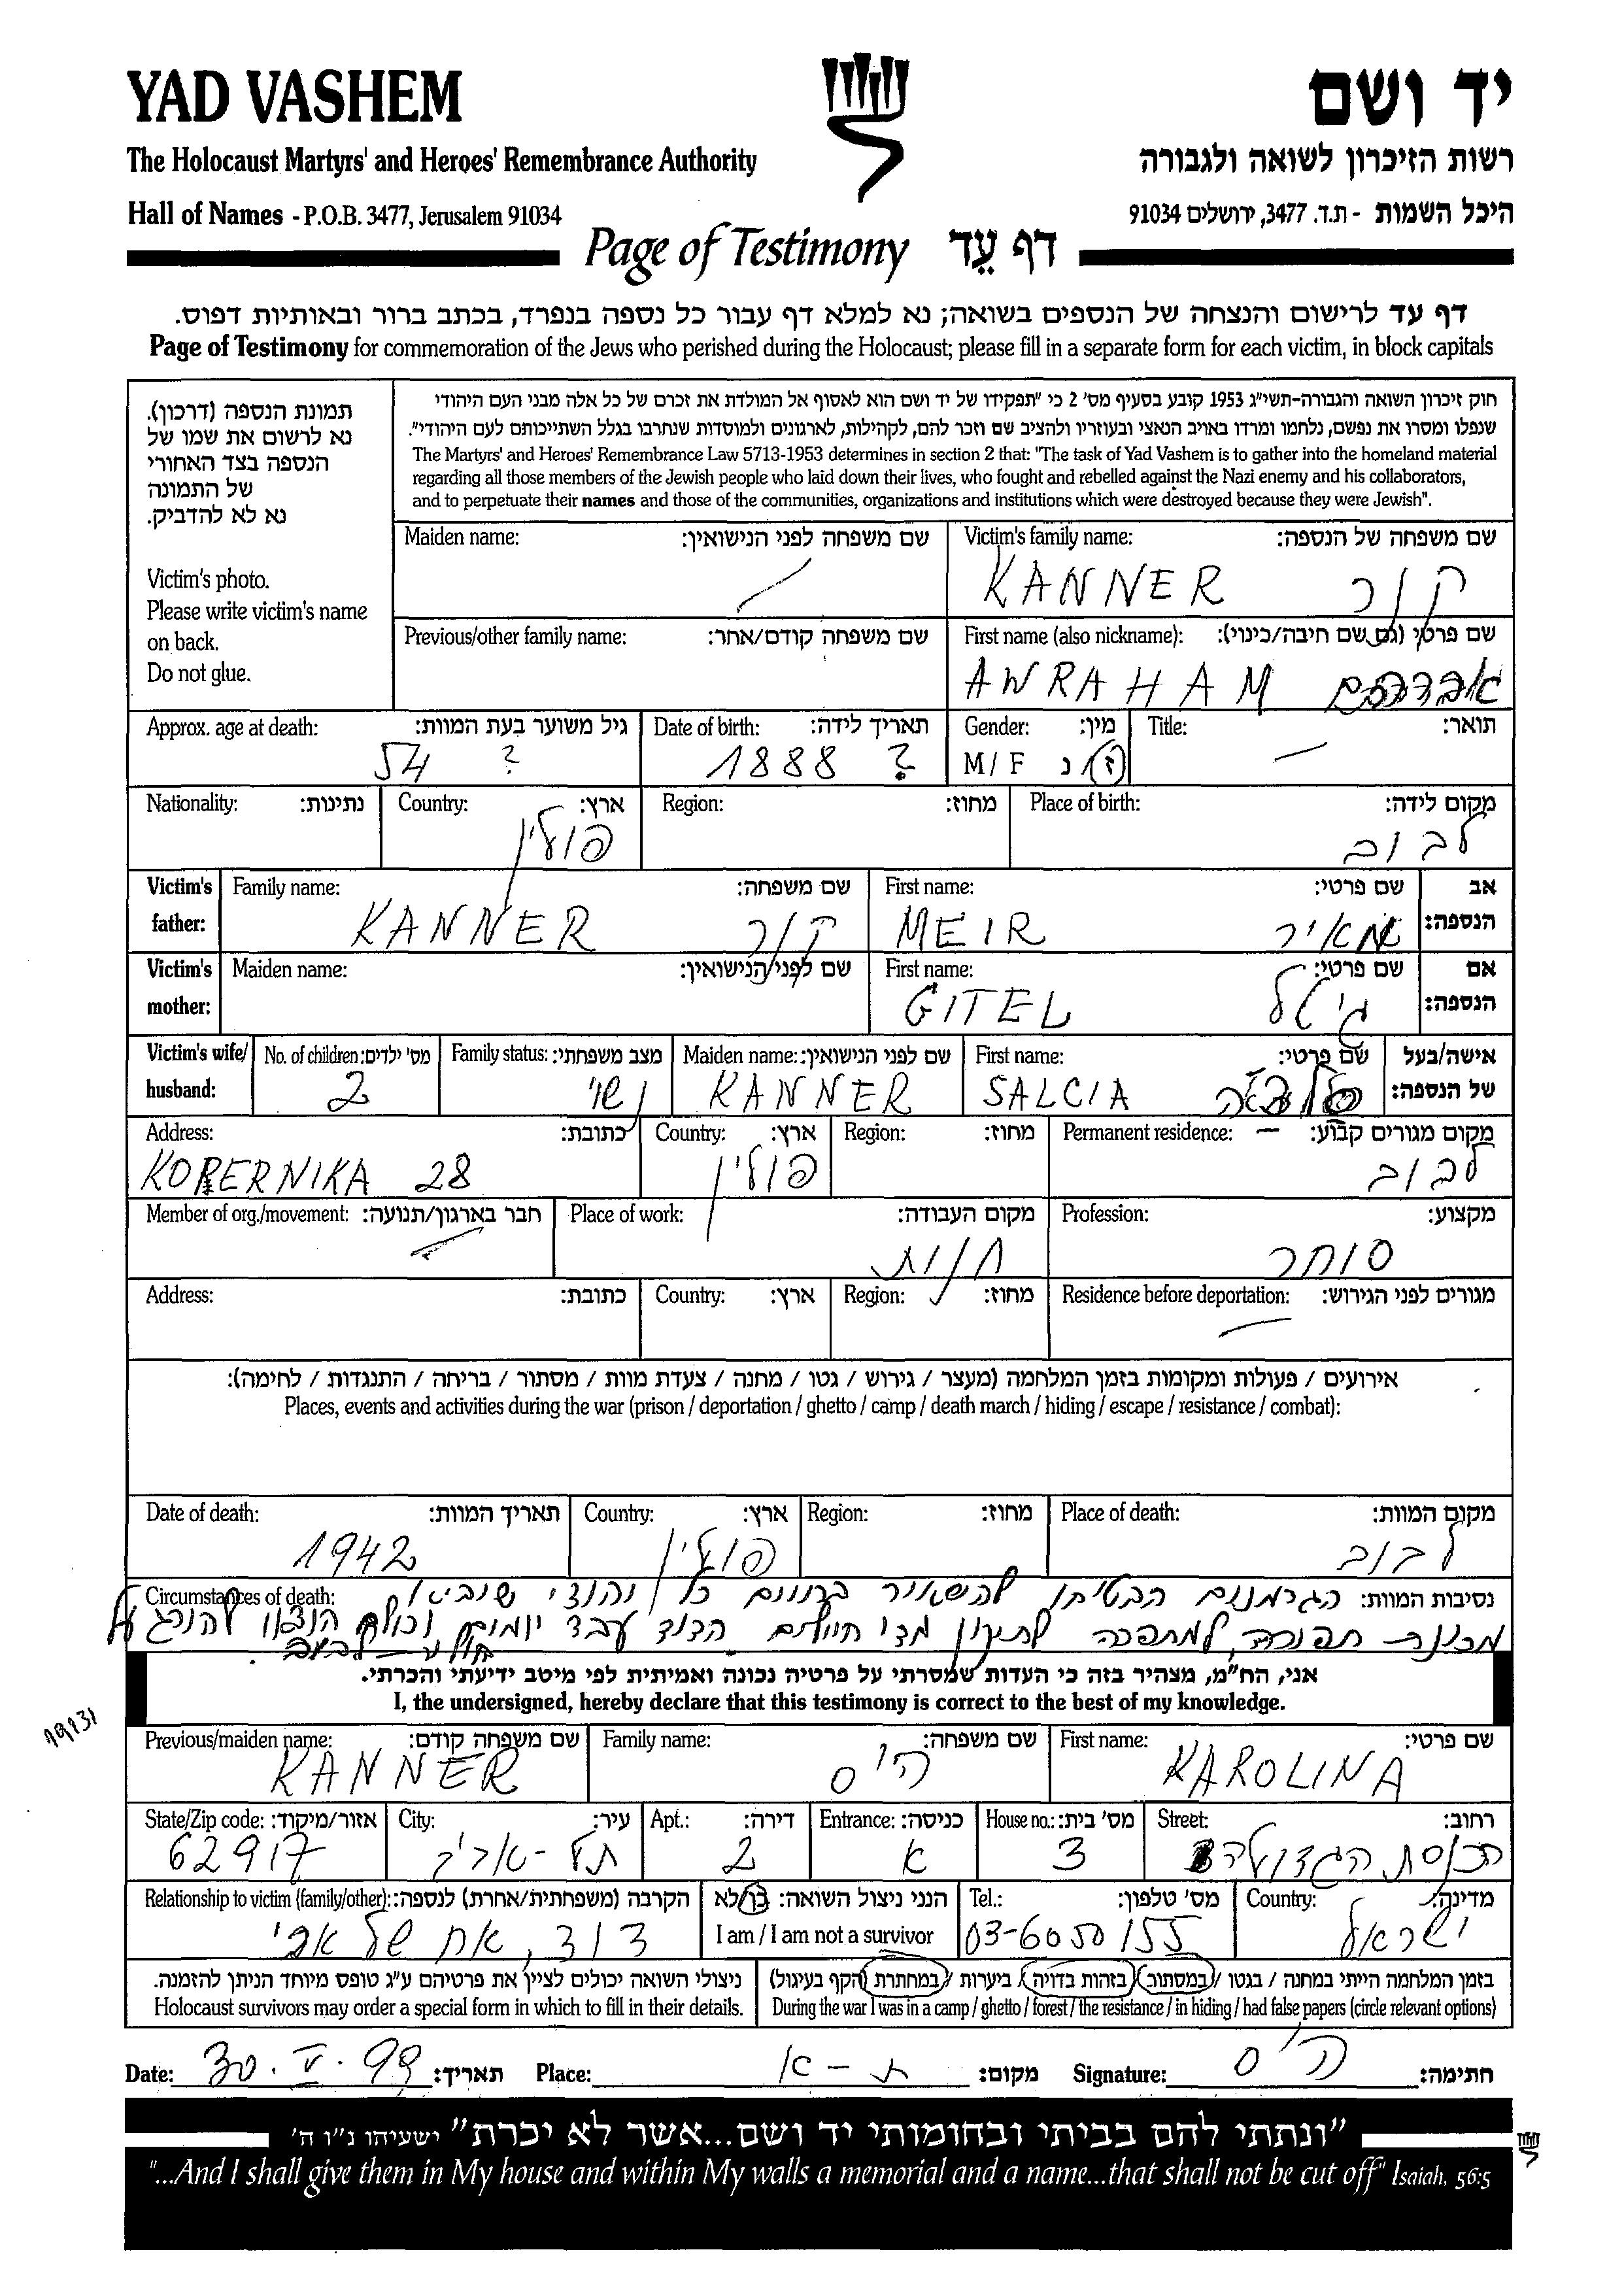 YAD VASHEM
יד ושם
The Holocaust Martyrs' and Heroes' Remembrance Authority
רשות הזיכרון לשואה ולגבורה
Hall of Names - P.O.B. 3477, Jerusalem 91034
היכל השמות - ת.ד. 3477, ירושלים 91034
Page of Testimony דף עֵד
דף עד לרישום והנצחה של הנספים בשואה; נא למלא דף עבור כל נספה בנפרד, בכתב ברור ובאותיות דפוס.
Page of Testimony for commemoration of the Jews who perished during the Holocaust; please fill in a separate form for each victim, in block capitals
תמונת הנספה (דרכון).
נא לרשום את שמו של
הנספה בצד האחורי
של התמונה
נא לא להדביק.
Victim's photo.
Please write victim's name
on back.
Do not glue.
חוק זיכרון השואה והגבורה-תשי"ג 1953 קובע בסעיף מס' 2 כי "תפקידו של יד ושם הוא לאסוף אל המולדת את זכרם של כל אלה מבני העם היהודי
שנפלו ומסרו את נפשם, נלחמו ומרדו באויב הנאצי ובעוזריו ולהציב שם וזכר להם, לקהילות, לארגונים ולמוסדות שנחרבו בגלל השתייכותם לעם היהודי".
The Martyrs' and Heroes' Remembrance Law 5713-1953 determines in section 2 that: "The task of Yad Vashem is to gather into the homeland material
regarding all those members of the Jewish people who laid down their lives, who fought and rebelled against the Nazi enemy and his collaborators,
and to perpetuate their names and those of the communities, organizations and institutions which were destroyed because they were Jewish".
Victim's family name: שם משפחה של הנספה:
KANNER קנר
Maiden name: שם משפחה לפני הנישואין:
First name (also nickname): שם פרטי (גם שם חיבה/כינוי):
AWRAHAM אברהם
Previous/other family name: שם משפחה קודם/אחר:
Title: תואר:
Gender: מין:
M/F ז/נ
Date of birth: תאריך לידה:
1888 ?
Approx. age at death: גיל משוער בעת המוות:
54 ?
Place of birth: מקום לידה:
לבוב
Region: מחוז:
Country: ארץ:
פולין
Nationality: נתינות:
Victim's father: אב הנספה:
First name: שם פרטי:
MEIR מאיר
Family name: שם משפחה:
KANNER קנר
Victim's mother: אם הנספה:
First name: שם פרטי:
GITEL גיטל
Maiden name: שם לפני הנישואין:
Victim's wife/husband: אישה/בעל של הנספה:
First name: שם פרטי:
SALCIA
Maiden name: שם לפני הנישואין:
KANNER
Family status: מצב משפחתי:
נשוי
No. of children: מס' ילדים:
2
Permanent residence: מקום מגורים קבוע:
לבוב
Region: מחוז:
Country: ארץ:
פולין
Address: כתובת:
KOPERNIKA 28
Profession: מקצוע:
סוחר
Place of work: מקום העבודה:
חנות
Member of org./movement: חבר בארגון/תנועה:
Residence before deportation: מגורים לפני הגירוש:
Region: מחוז:
Country: ארץ:
Address: כתובת:
אירועים / פעולות ומקומות בזמן המלחמה (מעצר / גירוש / גטו / מחנה / צעדת מוות / מסתור / בריחה / התנגדות / לחימה):
Places, events and activities during the war (prison / deportation / ghetto / camp / death march / hiding / escape / resistance / combat):
Place of death: מקום המוות:
לבוב
Region: מחוז:
Country: ארץ:
פולין
Date of death: תאריך המוות:
1942
Circumstances of death: נסיבות המוות: הגרמנים הבטיחו להשאיר בחיים כל יהודי שיביא
מכונת תפירה למתפרה לתיקון מדי חיילים הדוד עבד יומיים וכולם הוצאו להורג על
לבוב.
אני, הח"מ, מצהיר בזה כי העדות שמסרתי על פרטיה נכונה ואמיתית לפי מיטב ידיעתי והכרתי.
I, the undersigned, hereby declare that this testimony is correct to the best of my knowledge.
19131
First name: שם פרטי:
KAROLINA
Family name: שם משפחה:
היס
Previous/maiden name: שם משפחה קודם:
KANNER
Street: רחוב:
הכנסת הגדולה
House no.: מס' בית:
3
Entrance: כניסה:
א
Apt.: דירה:
2
City: עיר:
תל-אביב
State/Zip code: אזור/מיקוד:
62917
Country: מדינה:
ישראל
Tel.: מס' טלפון:
03-6050155
הנני ניצול השואה: כן/לא
I am / I am not a survivor
Relationship to victim (family/other): הקרבה (משפחתית/אחרת) לנספה:
דוד, אח של אבי
בזמן המלחמה הייתי במחנה / בגטו / במסתור / בזהות בדויה / ביערות / במחתרת (הקף בעיגול)
During the war I was in a camp / ghetto / forest / the resistance / in hiding / had false papers (circle relevant options)
ניצולי השואה יכולים לציין את פרטיהם ע"ג טופס מיוחד הניתן להזמנה.
Holocaust survivors may order a special form in which to fill in their details.
Date: 30.V.99 תאריך: Place: ת-א מקום: Signature: היס חתימה:
"ונתתי להם בביתי ובחומותי יד ושם...אשר לא יכרת" ישעיהו נ"ו ה'
"...And I shall give them in My house and within My walls a memorial and a name...that shall not be cut off" Isaiah, 56:5